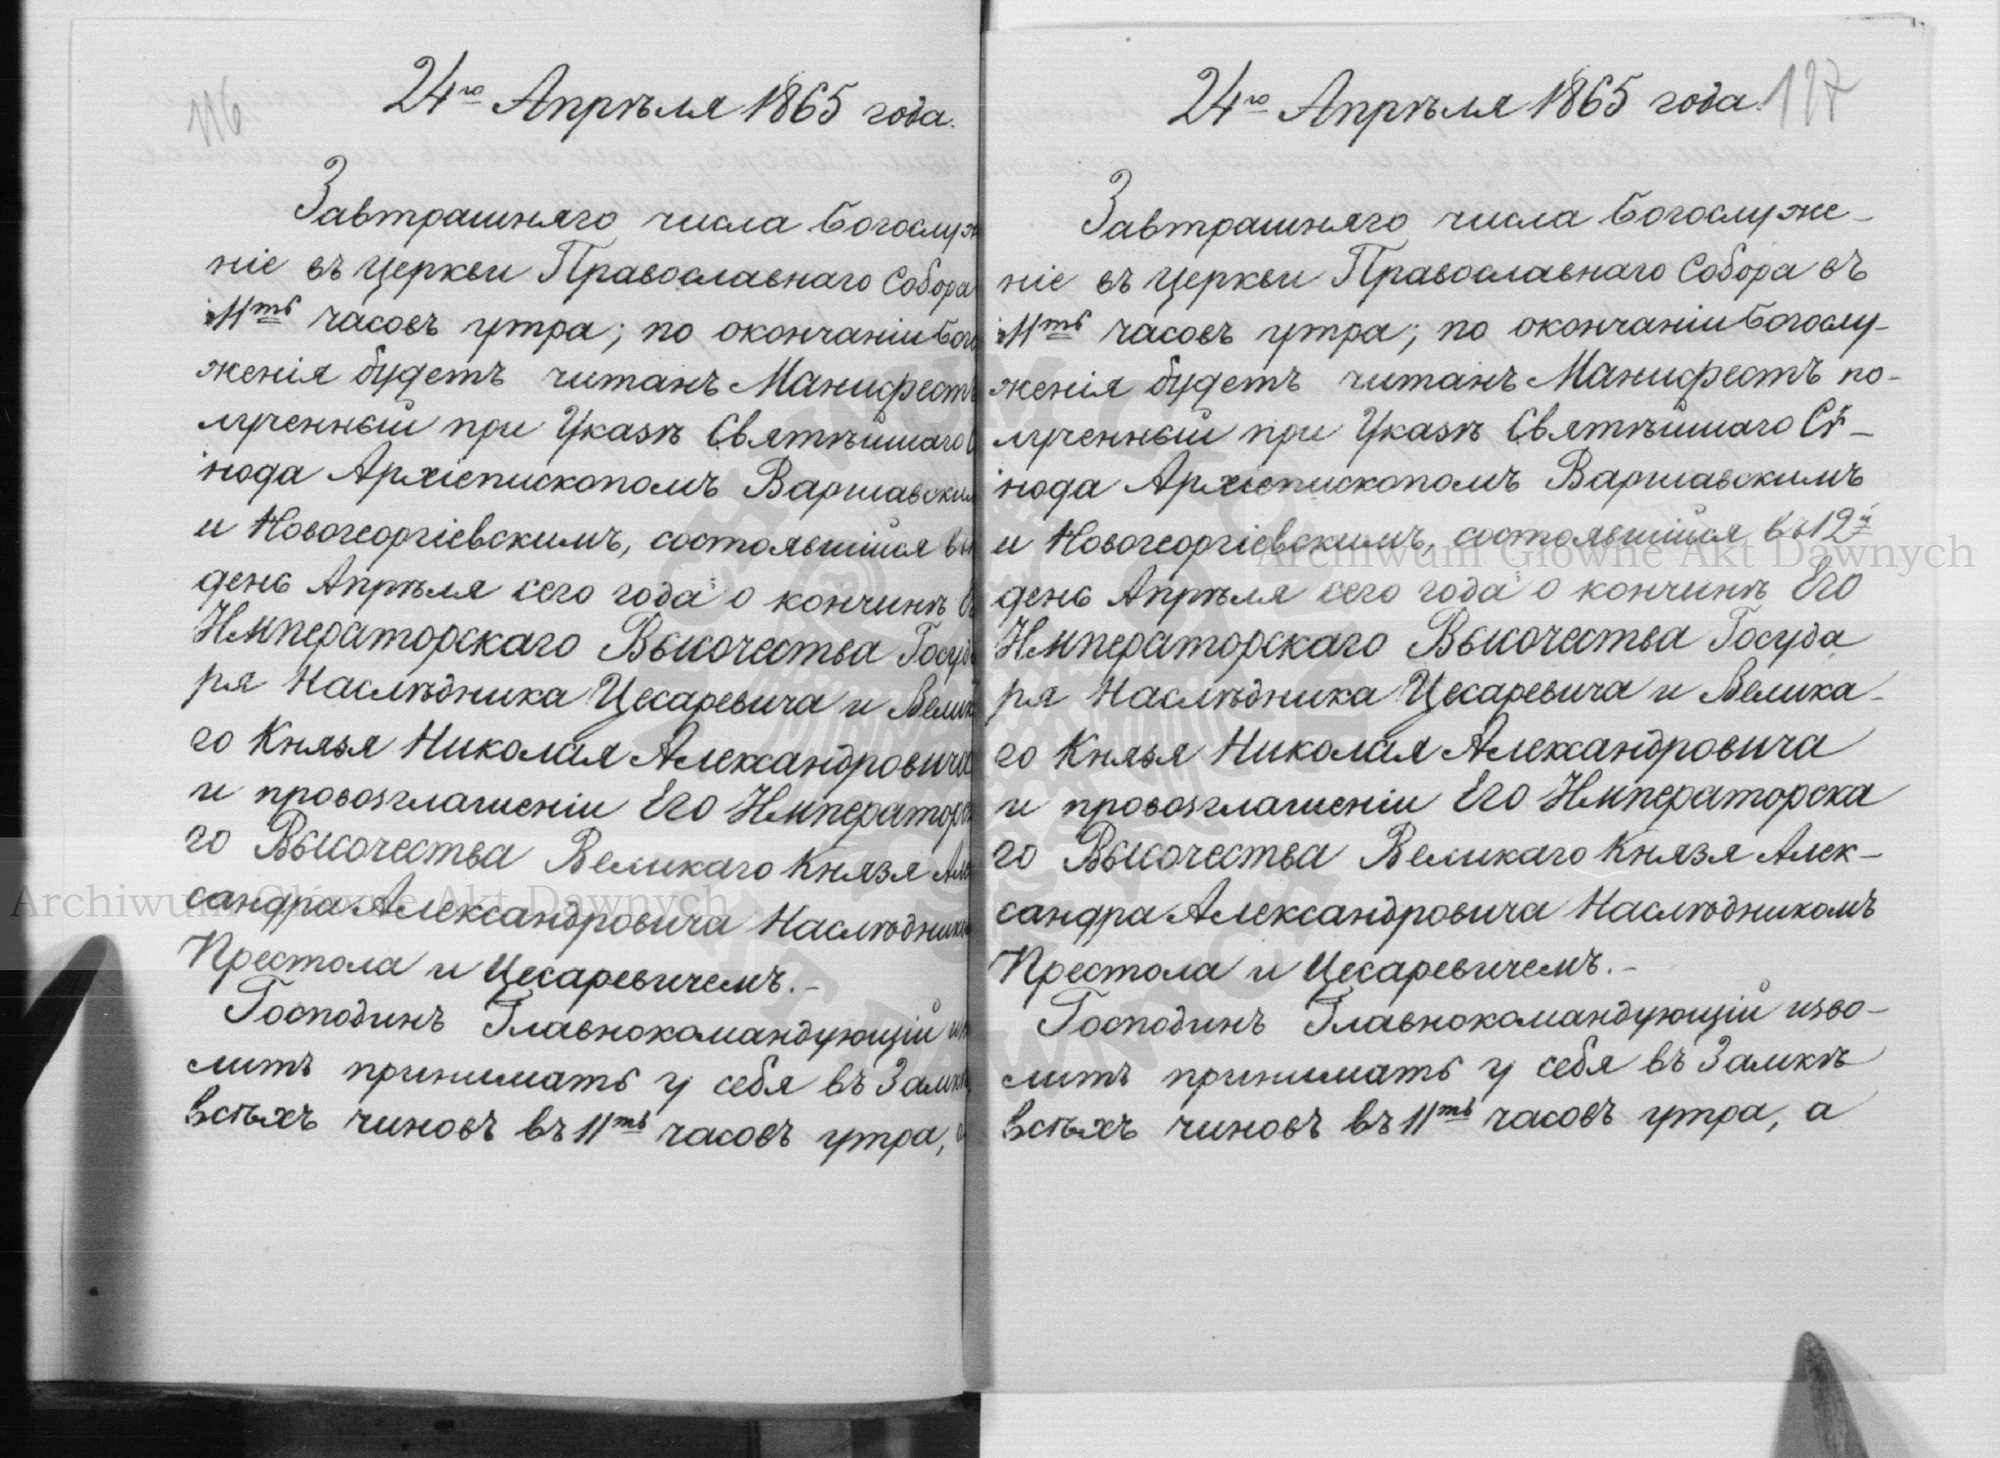 116
24го Апрѣля 1865 года.
Завтрашняго числа Богослуж
ніе въ Церкви Православнаго Собора
11ть часовъ утра; по окончаніи Бого
женія будетъ читанъ Манифестъ
лученный при Указѣ Святѣйшаго
нода Архіепископомъ Варшавским
и Новогеоргіевскимъ, состоявшійся въ
день Апрѣля сего года о кончинѣ
Императорскаго Высочества Госуд
ря Наслѣдника Цесаревича и Велик
го Князя Николая Александровича
и провозглашеніи Его Императорс
го Высочества Великаго Князя Але
сандра Александровича Наслѣдником
Престола и Цесаревичемъ.–
Господинъ Главнокомандующій из
литъ принимать у себя въ Замк
всѣхъ чиновъ въ 11ть часовъ утра,
117
24го Апрѣля 1865 года.
Завтрашняго числа Богослуже–
ніе въ Церкви Православнаго Собора въ
11ть часовъ утра; по окончаніи Богослу–
женія будетъ читанъ Манифестъ по–
лученный при Указѣ Святѣйшаго Сѵ–
нода Архіепископомъ Варшавскимъ
и Новогеоргіевскимъ, состоявшійся въ 12й
день Апрѣля сего года о кончинѣ Его
Императорскаго Высочества Госуда
ря Наслѣдника Цесаревича и Велика–
го Князя Николая Александровича
и провозглашеніи Его Императорска
го Высочества Великаго Князя Алек–
сандра Александровича Наслѣдникомъ
Престола и Цесаревичемъ.–
Господинъ Главнокомандующій изво–
литъ принимать у себя въ Замкѣ
всѣхъ чиновъ въ 11ть часовъ утра, а
Archiwum Główne Akt Dawnych
Archiwum Główne Akt Dawnych